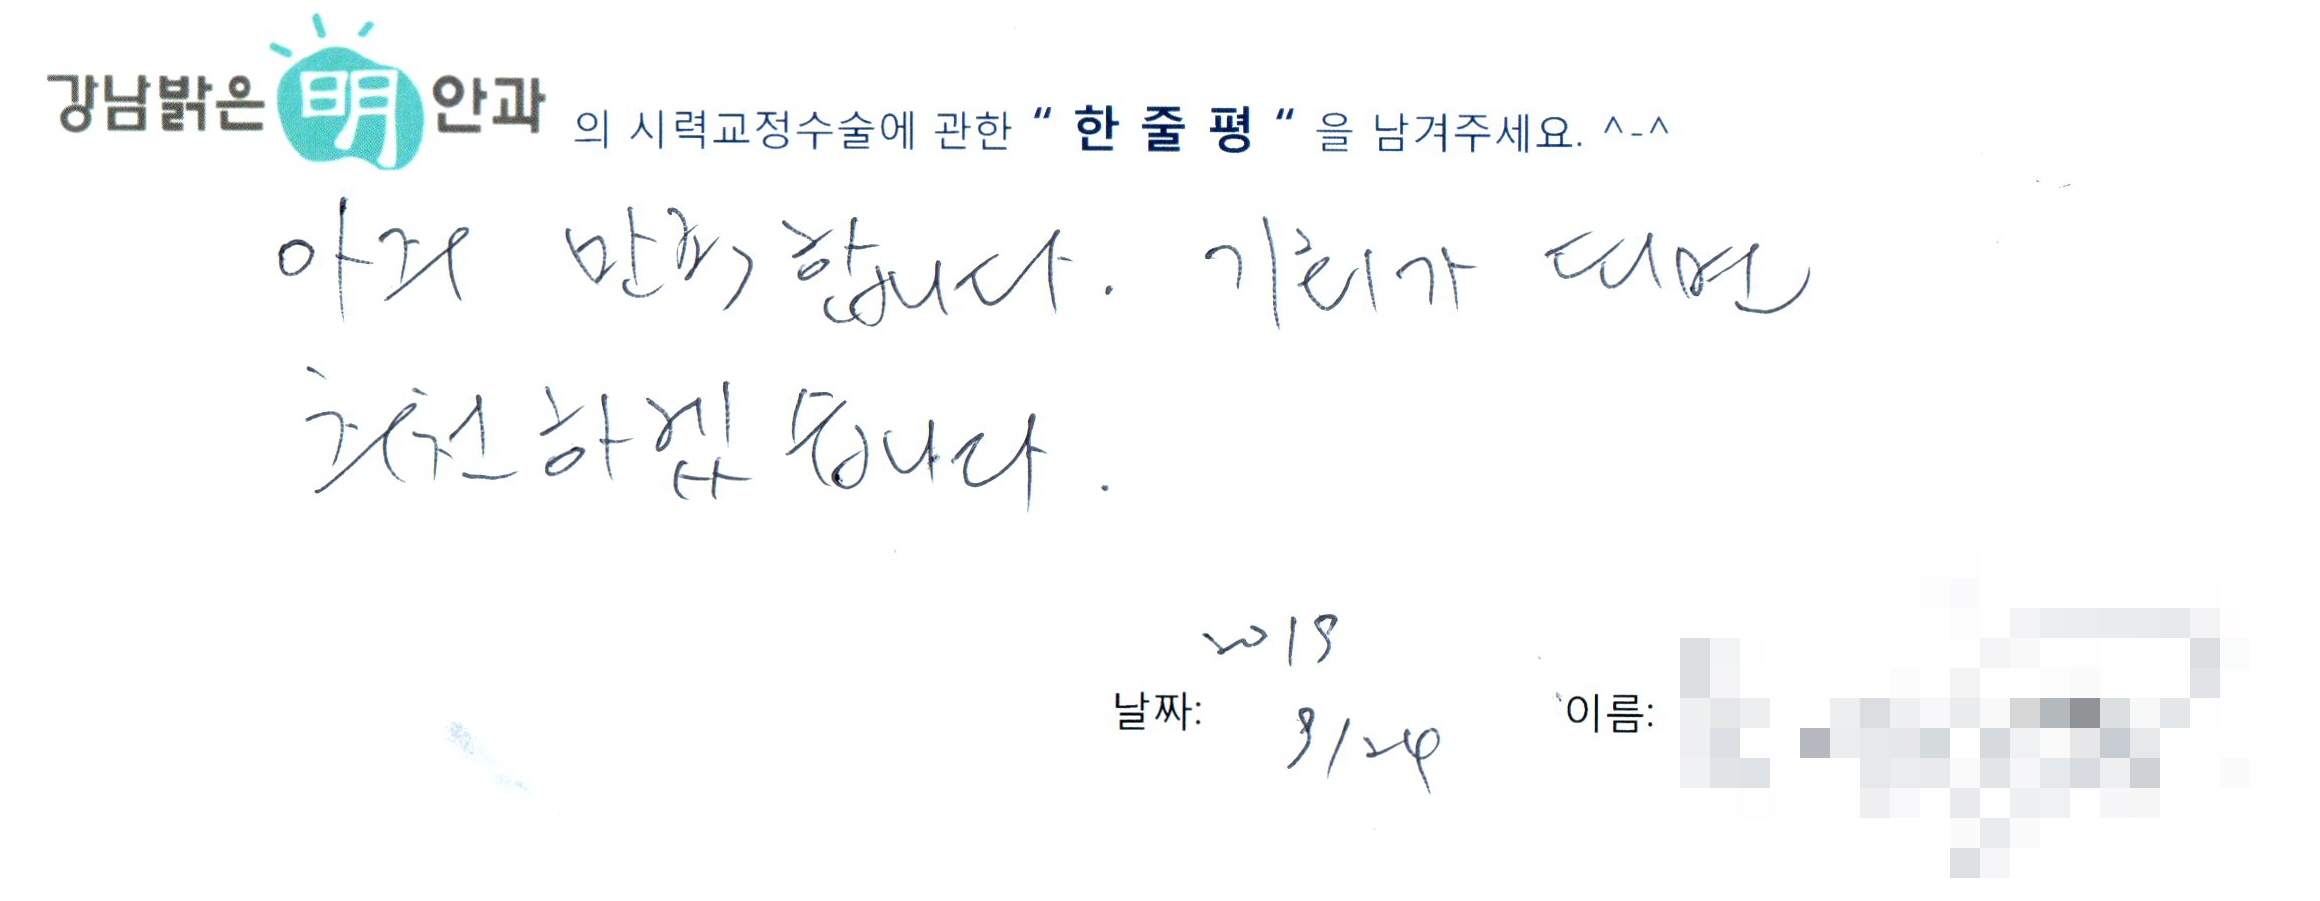 강남밝은 明 안과 의 시력교정수술에 관한 “ 한 줄 평 “ 을 남겨주세요. ^-^
아주 만족합니다. 기회가 되면
추천하겠습니다.
2019
날짜: 3/24 이름: